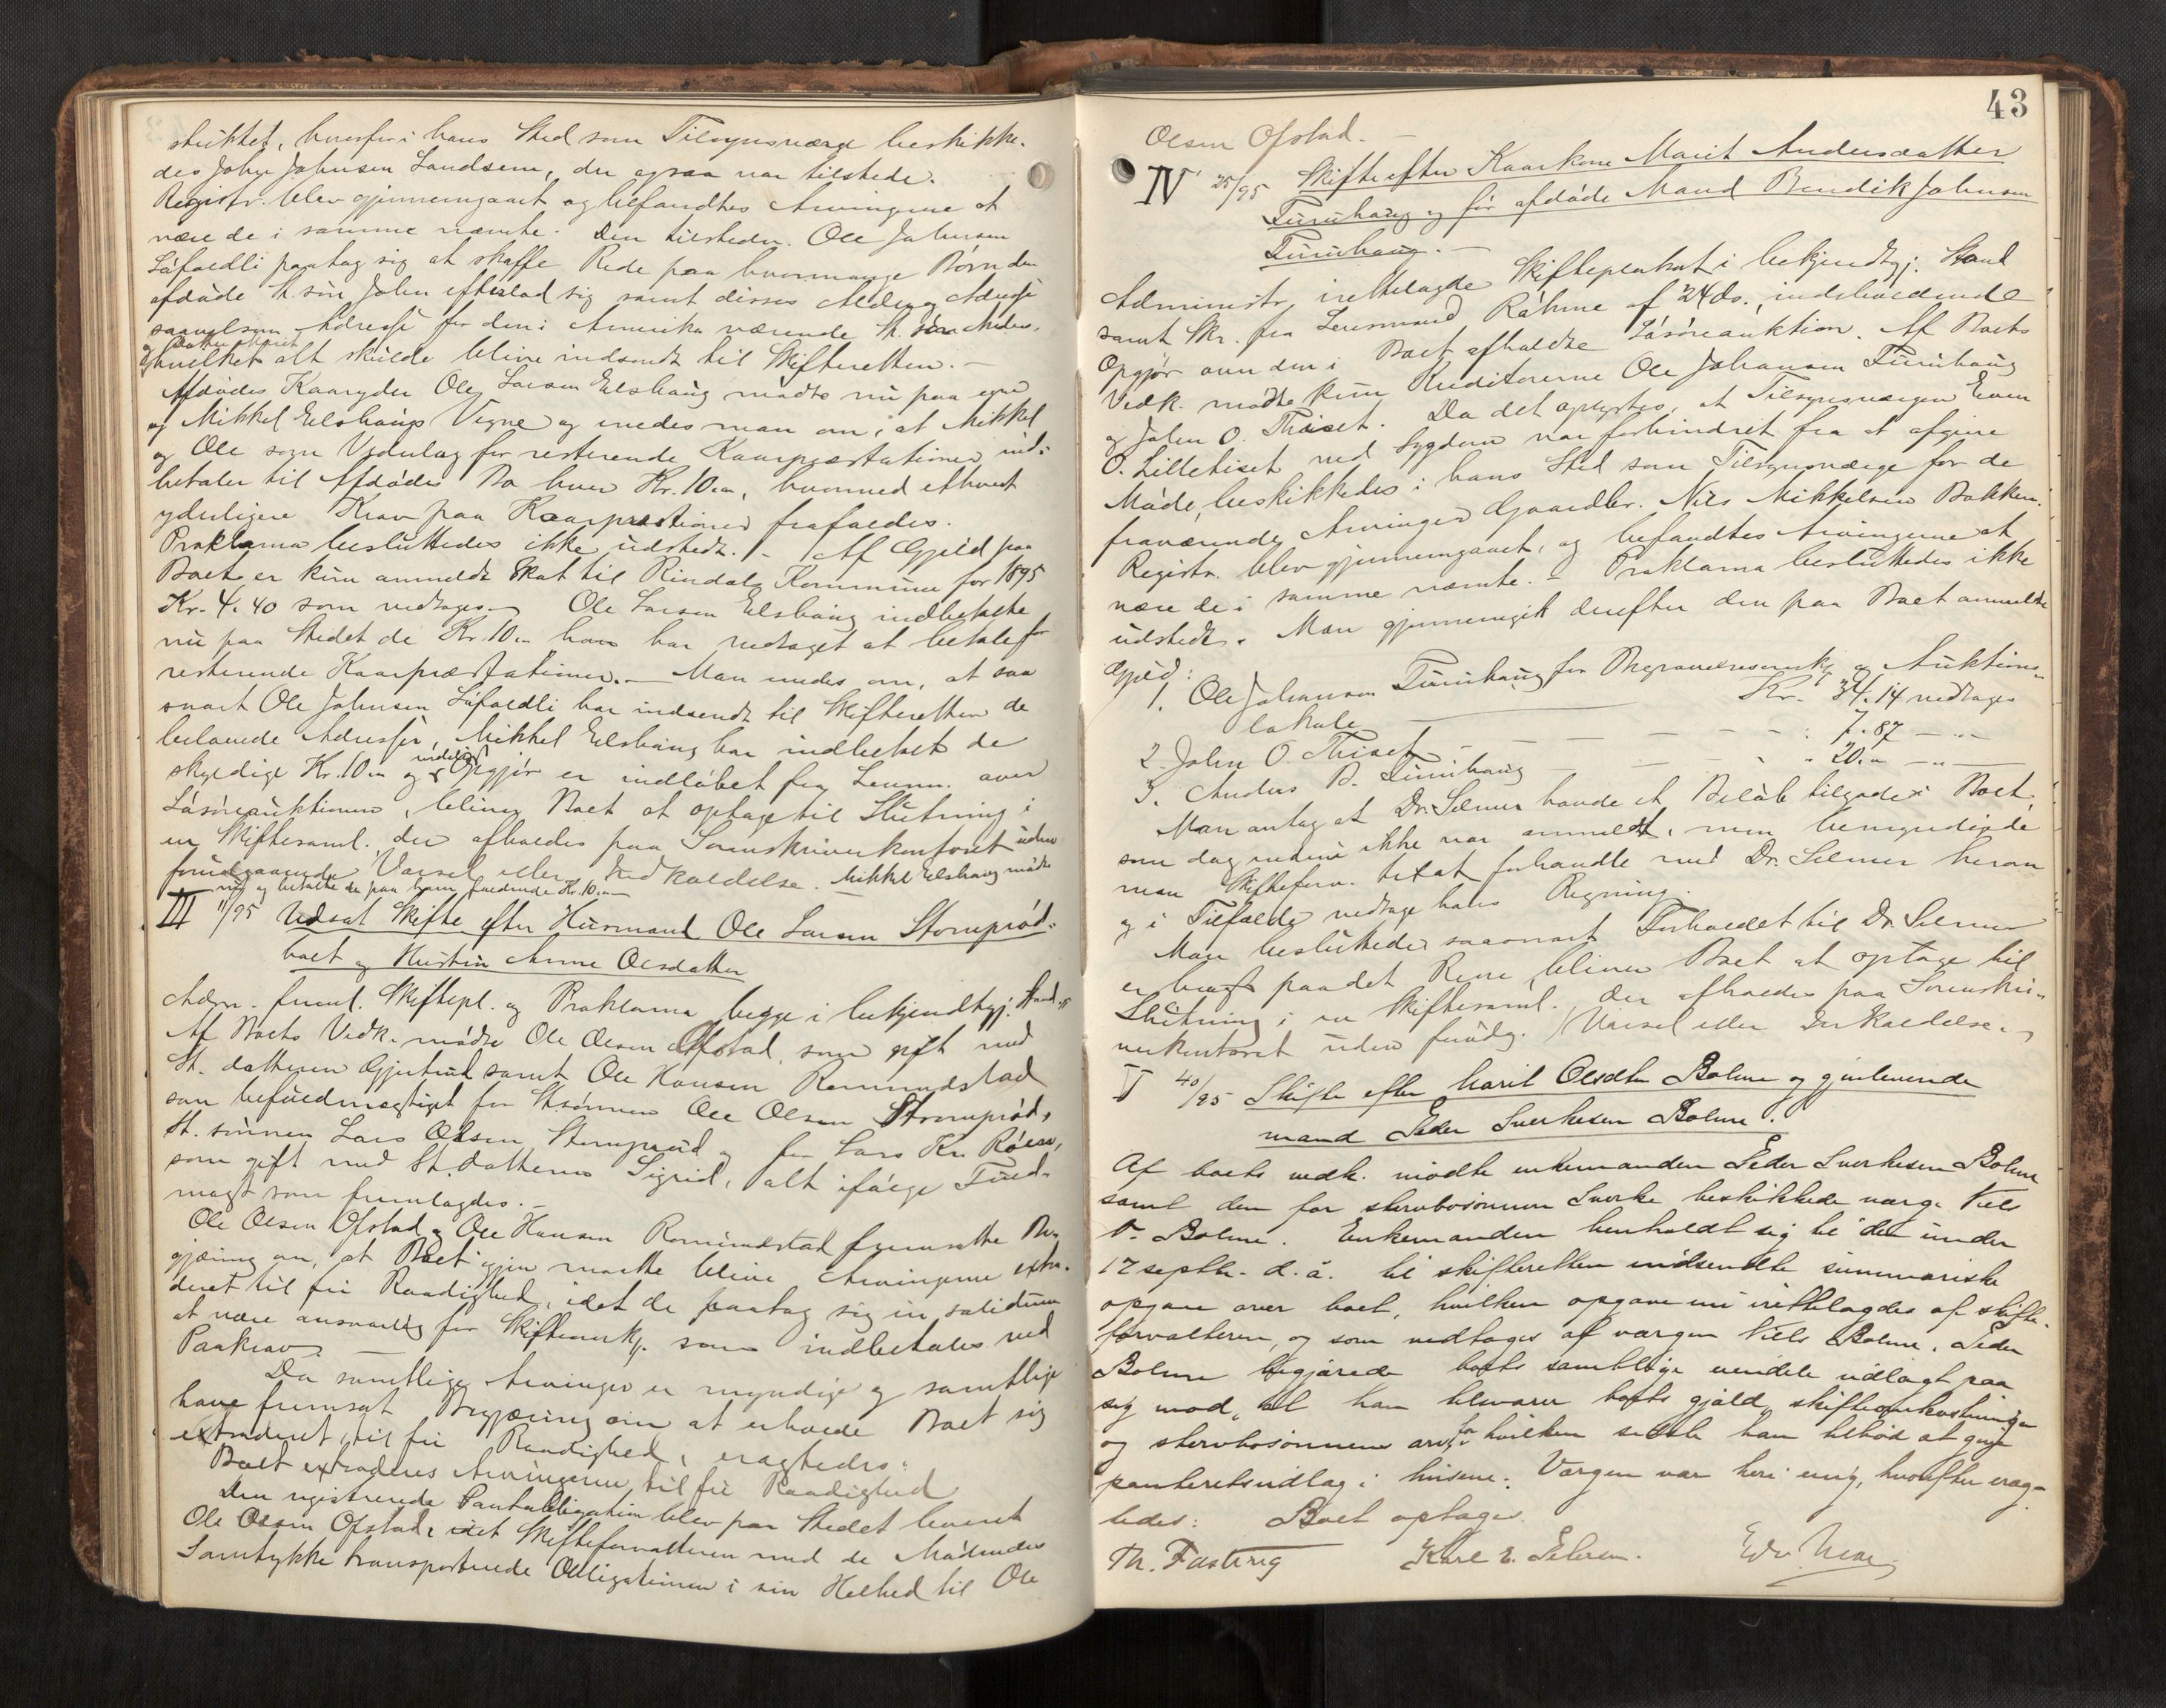 skikket, hvorfor i hans Sted som Tilsynsværge beskikke-
des John Johnsen Landsem, der ogsaa var tilstede.
Registr. blev gjennemgaaet og befandtes Arvingerne at
være de i samme nævnte. Den tilstedev. Ole Johnsen
Låfaldli paatog sig at skaffe Rede paa hvormange Børn den
afdøde St. søn John efterlod sig samt disses Alder og Adresse
saavelsom Adresse for den i Amerika værende St. søn Anders,
og Datter Marit
hvilket alt skulde blive indsendt til Skifteretten. -
Afdødes Kaaryder Ole Larsen Elshaug mødte nu paa egne
og Mikkel Elshaugs Vegne og enedes man om, at Mikkel
og Ole som Vederlag for resterende Kaarpræstationer ind-
betaler til Afdødes Bo hver Kr. 10.00, hvormed ethvert
yderligere Krav paa Kaarpræstationer frafaldes.
Proklama besluttedes ikke udstedt. - Af Gjæld paa
Boet er kun anmeldt Skat til Rindals Kommune for 1895
Kr. 4.40 som vedtages. - Ole Larsen Elshaug indbetalte
nu paa Stedet de Kr. 10.00 han har vedtaget at betale for
resterende Kaarpræstationer. - Man enedes om, at saa
snart Ole Johnsen Låfaldli har indsendt til Skifteretten de
belovede Adresser, Mikkel Elshaug har indbetalt de
skyldige Kr. 10.00 og endeligt Opgjør er indløbet fra Lensm. over
Løsøreauktionen, bliver Boet at optage til Slutning i
en Skiftesaml. der afholdes paa Sorenskriverkontoret uden
forudgaaende Varsel eller Indkaldelse. Mikkel Elshaug mødte
nu og betalte de paa ham faldende Kr. 10.00
III 11/95 Udsat Skifte efter Husmand Ole Larsen Stomprød-
haet og Hustru Anne Olsdatter
Adm. freml. Skiftepl. og Proklama begge i bekjendtgj. Stand.
Af Boets Vedk. mødte Ole Olsen Ofstad, som gift med
St. datteren Gjertrud samt Ole Hansen Romundstad
som befuldmægtiget for St. sønnen Ole Olsen Stomprød,
St. sønnen Lars Olsen Stomprød og for Lars Kr. Røen,
som gift med St. datteren Sigrid, alt ifølge Fuld-
magt som fremlagdes. -
Ole Olsen Ofstad og Ole Hansen Romundstad fremsatte Be-
gjæring om, at Boet igjen maatte blive Arvingerne extra-
deret til fri Raadighed, idet de paatog sig in solidum
at være ansvarlig for Skifteomk. som indbetales ved
Paakrav. -
Da samtlige Arvinger er myndige og samtlige
have fremsat Begjæring om at erholde Boet sig
extraderet til fri Raadighed, eragtedes:
Boet extraderes Arvingerne til fri Raadighed
Den registrerede Pantobligation blev paa Stedet leveret
Ole Olsen Ofstad, idet Skifteforvalteren med de Mødendes
Samtykke transporterede Obligationen i sin Helhed til Ole
43
Olsen Ofstad. -
IV 25/95 Skifte efter Kaarkone Marit Andersdatter
Furuhaug og før afdøde Mand Bendik Johnsen
Furuhaug. -
Administr. irettelagde Skifteplakat i bekjendtgj. Stand
samt Skr. fra Lensmand Råhme af 24 ds., indeholdende
Opgjør over den i Boet afholdte Løsøreauktion. Af Boets
Vedk. mødte kun Kreditorerne Ole Johansen Furuhaug
og John O. Thiset. Da det oplystes, at Tilsynsværgen Even
O. Lillehiset ved Sygdom var forhindret fra at afgive
Møde, beskikkedes i hans Sted som Tilsynsværge for de
fraværende Arvinger Gaardbr. Nils Mikkelsen Bakken.
Registr. blev gjennemgaaet, og befandtes Arvingerne at
være de i samme nævnte. - Proklama besluttedes ikke
udstedt. Man gjennemgik derefter den paa Boet anmeldte
Gjæld:
1. Ole Johansen Furuhaug for Begravelsesomk. og Auktions-
lokale Kr. 34.14 vedtages
2. John O. Thiset - - - - - - 7.87 - "-
3. Anders B. Furuhaug - - - - " 20.00 - "-
Man antog at Dr. Selmer havde et Beløb tilgode i Boet
som dog endnu ikke var anmeldt, men bemyndigede
man Skifteforv. til at forhandle med Dr. Selmer herom
og i Tilfælde vedtage hans Regning.
Man besluttede saasnart Forholdet til Dr. Selmer
er bragt paa det Rene, bliver Boet at optage til
Slutning i en Skiftesaml. der afholdes paa Sorenskri-
verkontoret uden forudg. Varsel eller Indkaldelse. -
V 40/95 Skifte efter Marit Olsdtr Bolme og gjenlevende
mand Peder Sverkesen Bolme.
Af boets vedk. mødte enkemanden Peder Sverkesen Bolme
samt den for stervbosønnen Sverke beskikkede verge Niels
P. Bolme. Enkemanden henholdt sig til den under
17 septbr. d. å. til skifteretten indsendte summariske
opgave over boet, hvilken opgave nu irettelagdes af skifte-
forvalteren, og som vedtoges af vergen Niels Bolme. Peder
Bolme begjærede boets samtlige eiendele udlagt paa
sig mod, at han tilsvarer boets gjæld, skifteomkostninger
og stervbosønnens arv, for hvilken sidste han tilbød at give
panteretsudlag i husene. Vergen var heri enig, hvorefter erag-
tedes: Boet optages.
Th. Fasting Karl E. Petersen. Edv. Moe